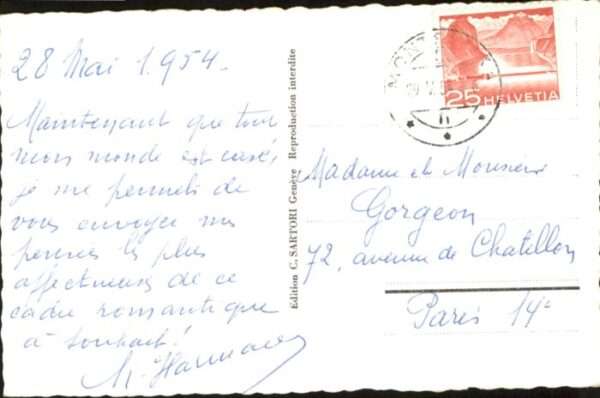 28 Mai 1954.
Maintenant que tout
mon monde est casé,
je me permets de
vous envoyer mes
pensées les plus
affectueuses de ce
cadre romantique que
à souhait!
Edition C. SARTORI Genève Reproduction interdite
25 HELVETIA
Madame et Monsieur
Gorgeon
72, avenue de Chatillon
Paris 14e